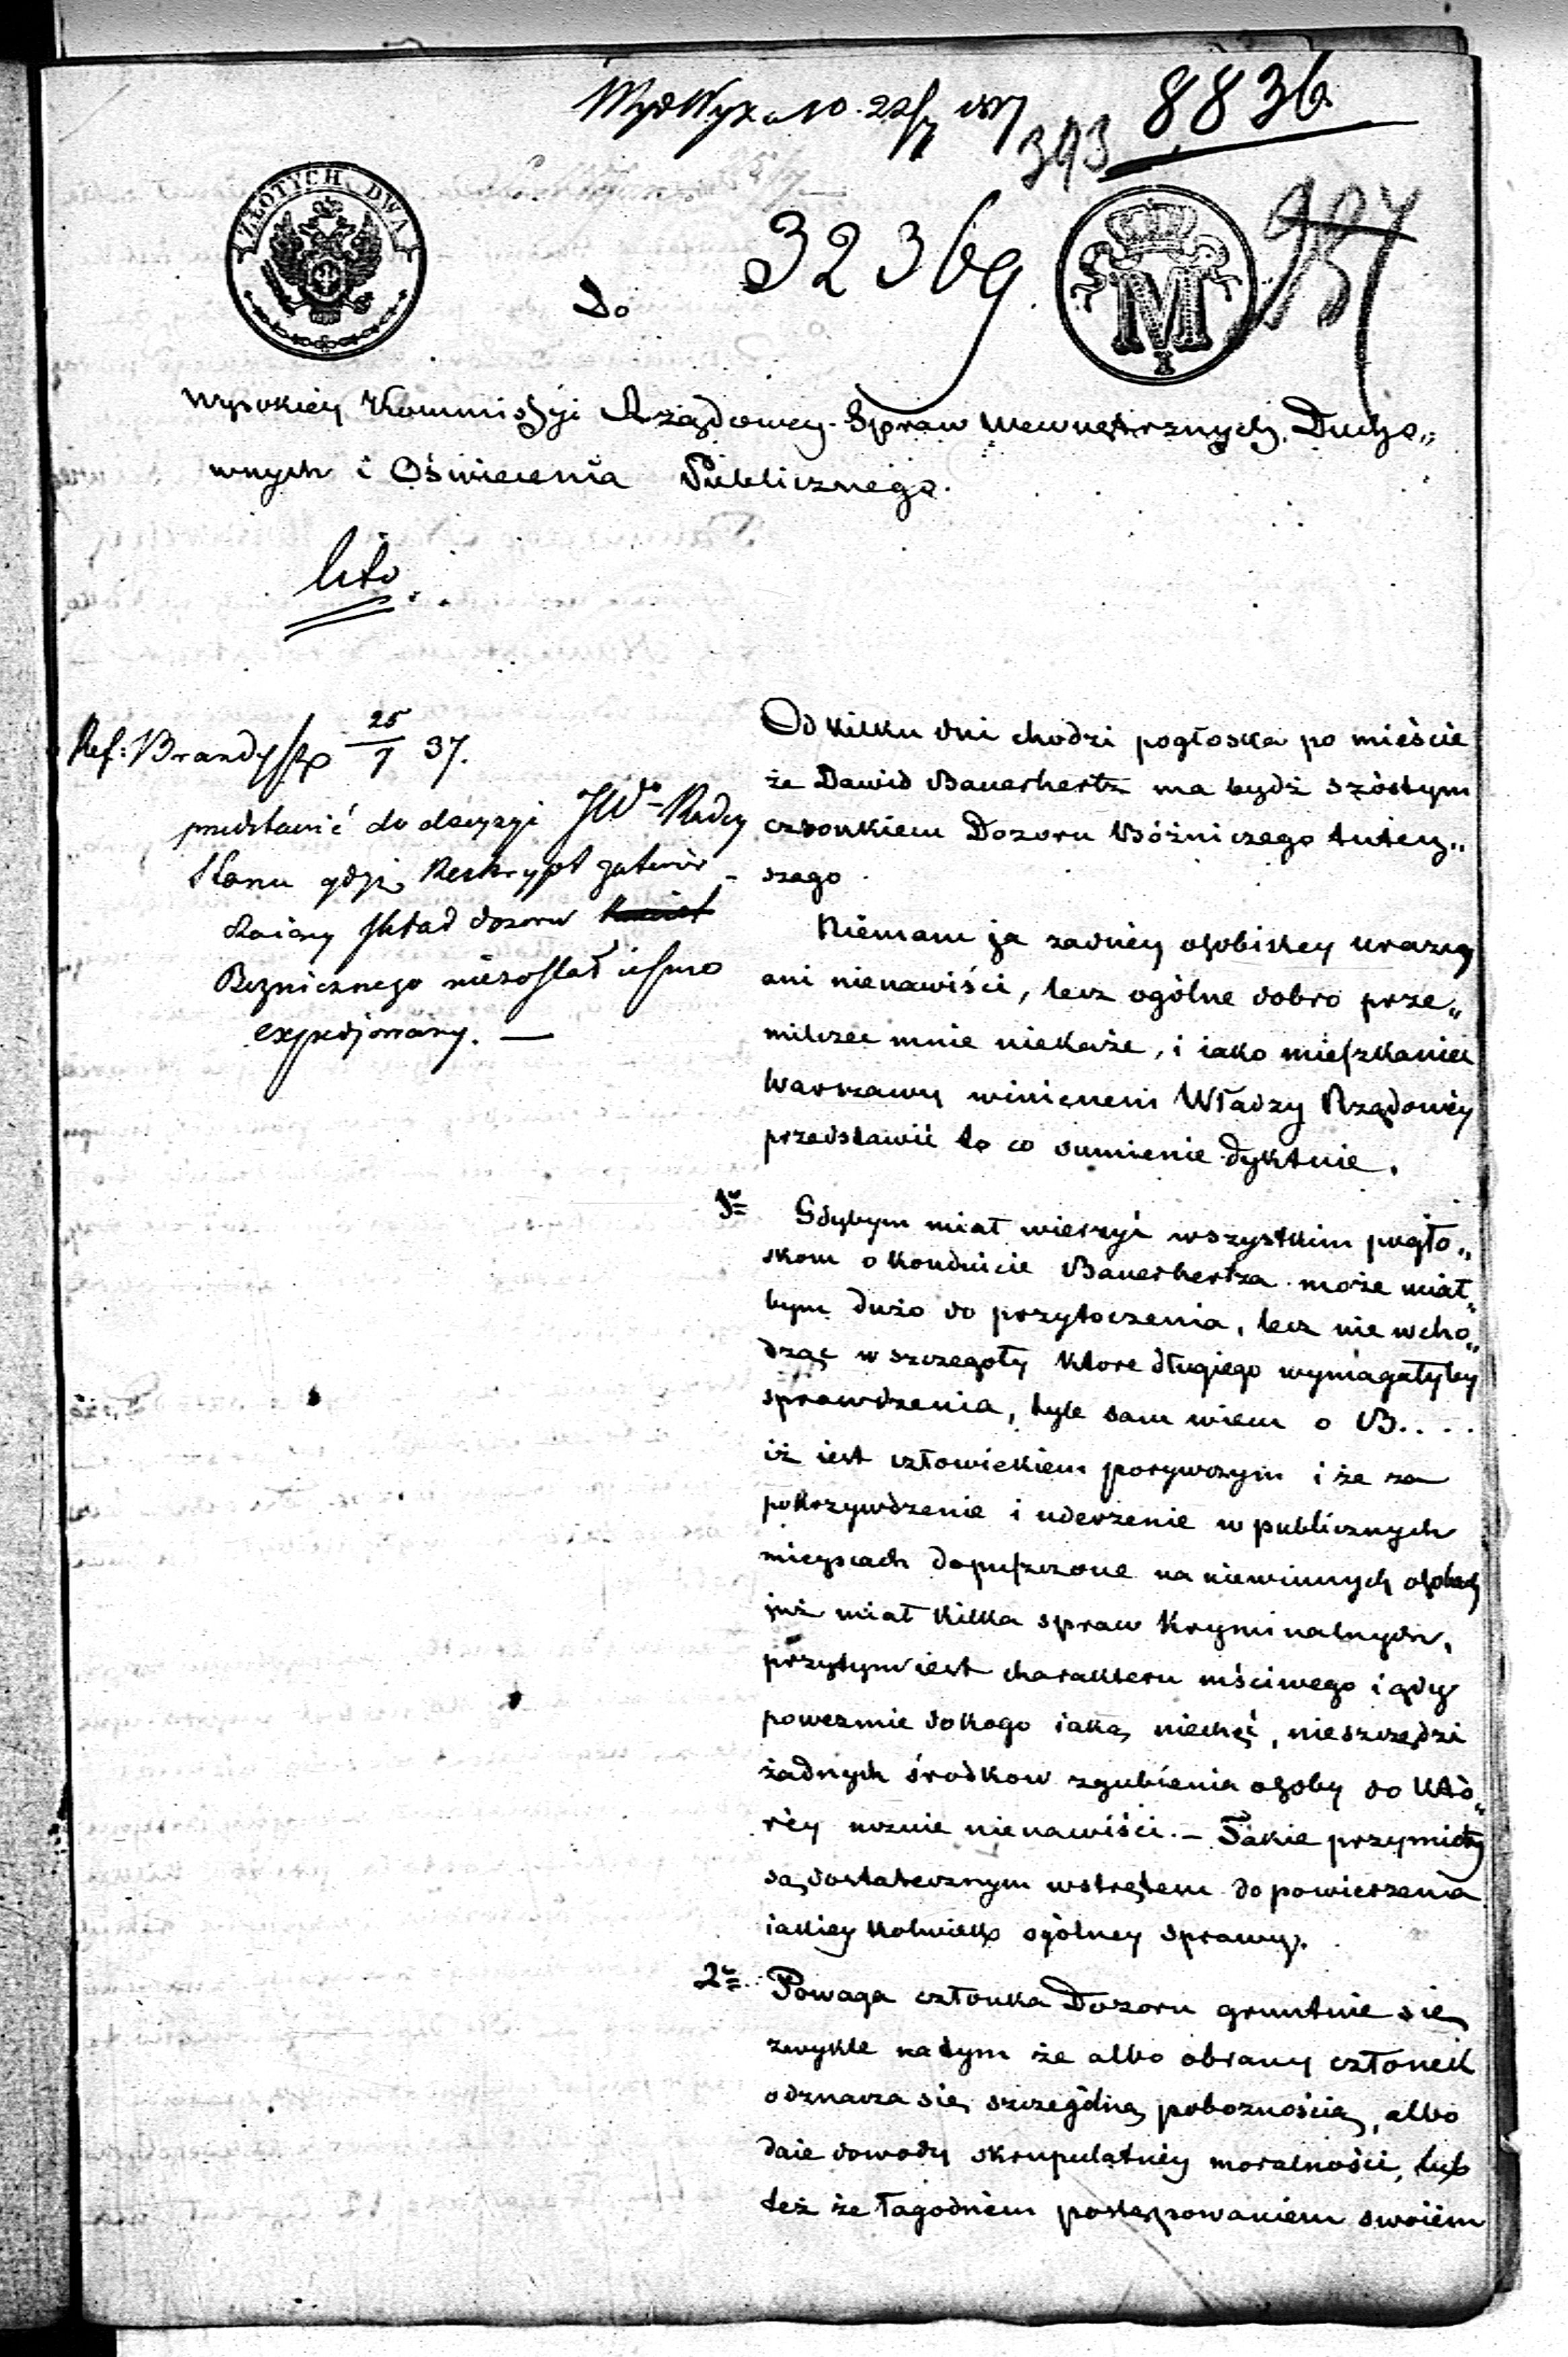 8836
393
ZŁOTYCH DWA
32369
M
I
Do
Wysokiéy Kommissyi Rządowey Spraw Wewnętrznych, Ducho„
wnych i Oświecenia Publicznego.
cito
Ref: Brandys 25/7 37.
przedstawić do decyzyi JWo Radcy
Stanu gdyż Reskrypt zatwier-
dzaiący skład dozoru
Bożnicznego niezostał ieszcze
expedjowany. —
Od kilku dni chodzi pogłoska po mieście
że Dawid Bauerhertz ma bydź szóstym
członkiem Dozoru Bóżniczego tutey„
szego.
Niemam ja żadnéy osobistey urazy
ani nienawiści, lecz ogólne dobro prze„
milczec mnie niekaże, i iako mieszkaniec
Warszawy winienem Władzy Rządowéy
przedstawić to co sumienie dyktuie.
1o Gdybym miał wierzyć wszystkim pogło„
skom o konduicie Bauerhertza może miał„
bym dużo do przytoczenia, lecz nie wcho„
dząc w szczegoły ktore długiego wymagałyby
sprawdzenia, tyle sam wiem o B....
iż iest człowiekiem porywczym i że za
pokrzywdzenie i uderzenie w publicznych
mieyscach dopuszczone na niewinnych osobach
już miał kilka spraw kryminalnych,
przytym iest charakteru mściwego i gdy
powezmie do kogo iaką niechęć, nieszczędzi
żadnych środkow zgubienia osoby do któ„
réy uczuie nienawiści. — Takie przymioty
są dostatecznym wstrętem do powierzenia
iakiey kolwiek ogólney sprawy.
2o Powaga członka Dozoru gruntuie się
zwykle na tym że albo obrany członek
odznacza się szczególną pobożnością, albo
daie dowody skrupulatnéy moralności, lub
też że łagodném postępowaniem swoiém